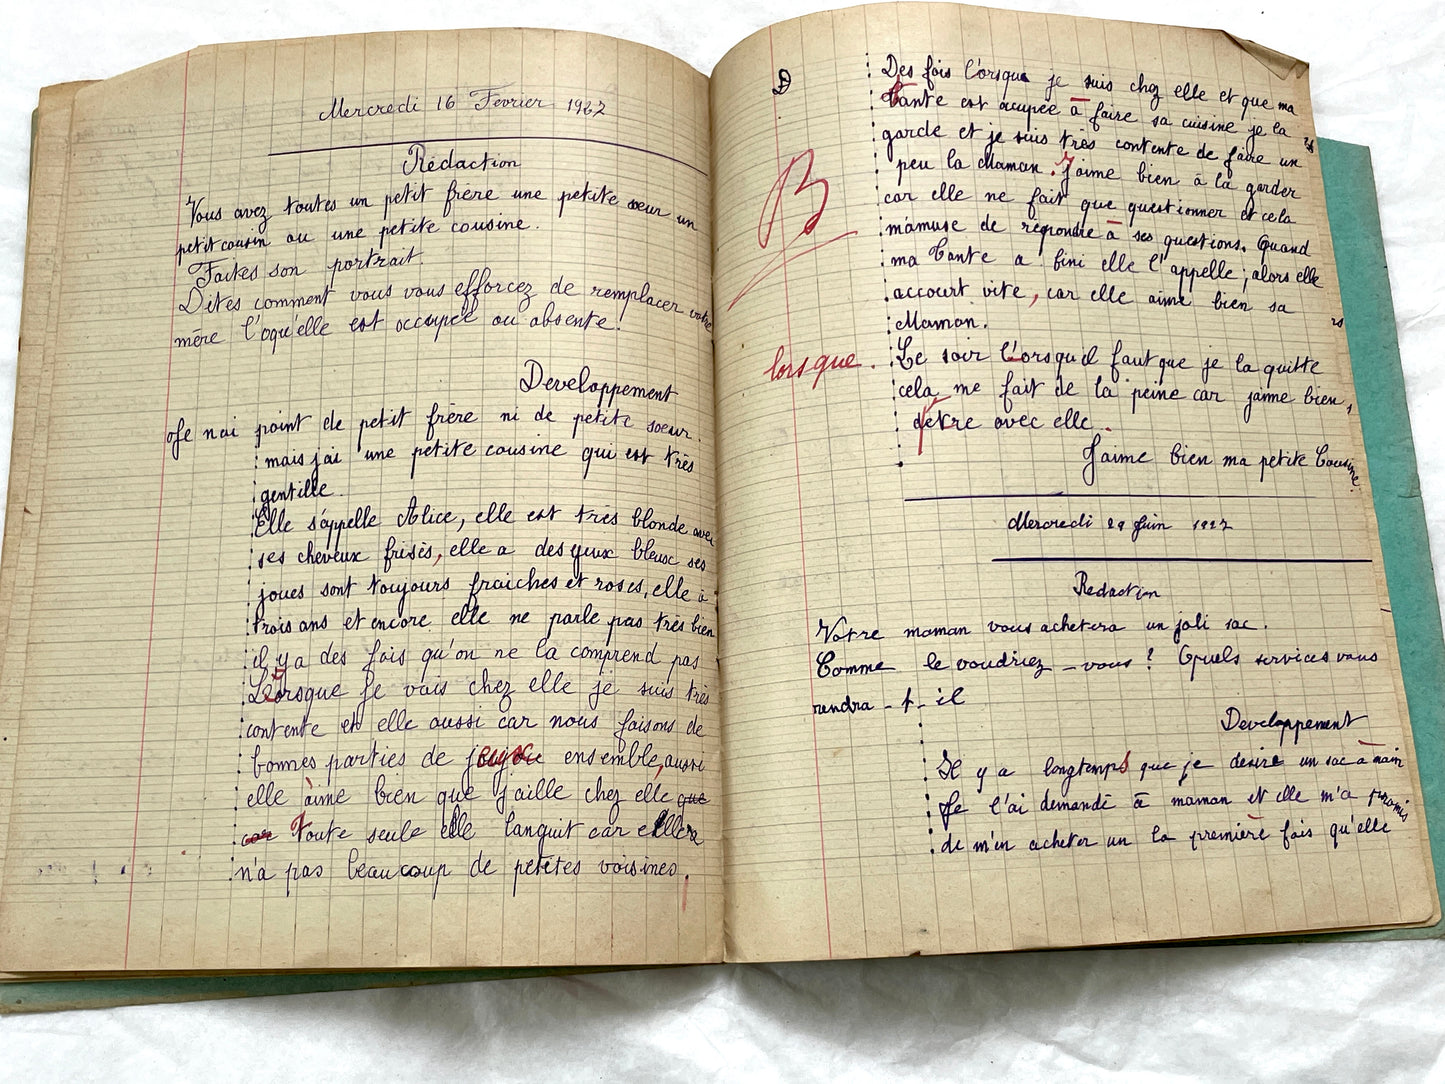 Mercredi 16 Février 1927
Rédaction
Vous avez toutes un petit frère une petite sœur un
petit cousin ou une petite cousine.
Faites son portrait.
Dites comment vous vous efforcez de remplacer votre
mère l'oqu'elle est occupée ou absente.
Developpement
Je n'ai point de petit frère ni de petite soeur.
mais j'ai une petite cousine qui est très
gentille.
Elle s'appelle Alice, elle est très blonde avec
ses cheveux frisés, elle a des yeux bleus ses
joues sont toujours fraiches et roses, elle à
trois ans et encore elle ne parle pas très bien
il y a des fois qu'on ne la comprend pas
Lorsque je vais chez elle je suis très
contente et elle aussi car nous faisons de
bonnes parties de ensemble, aussi
elle aime bien que j'aille chez elle que
car Toute seule elle languit car elle
n'a pas beaucoup de petites voisines.
Des fois l'orsque je suis chez elle et que ma
tante est acupée à faire sa cuisine je la
garde et je suis très contente de faire un
peu la Maman. J'aime bien à la garder
car elle ne fait que questionner et cela
m'amuse de répondre à ses questions. Quand
ma tante a fini elle l'appelle, alors elle
accourt vite, car elle aime bien sa
Maman.
B
lorsque.
Le soir l'orsqu'il faut que je la quitte
cela me fait de la peine car j'aime bien
detre avec elle.
J'aime bien ma petite Cousine.
Mercredi 29 Juin 1927
Rédaction
Votre maman vous achetera un joli sac.
Comme le voudriez-vous? Quels services vous
rendra-t-il
Developpement
Il y a longtemps que je désire un sac à main
Je l'ai demandé à maman et elle m'a promis
de m'en acheter un la première fois qu'elle